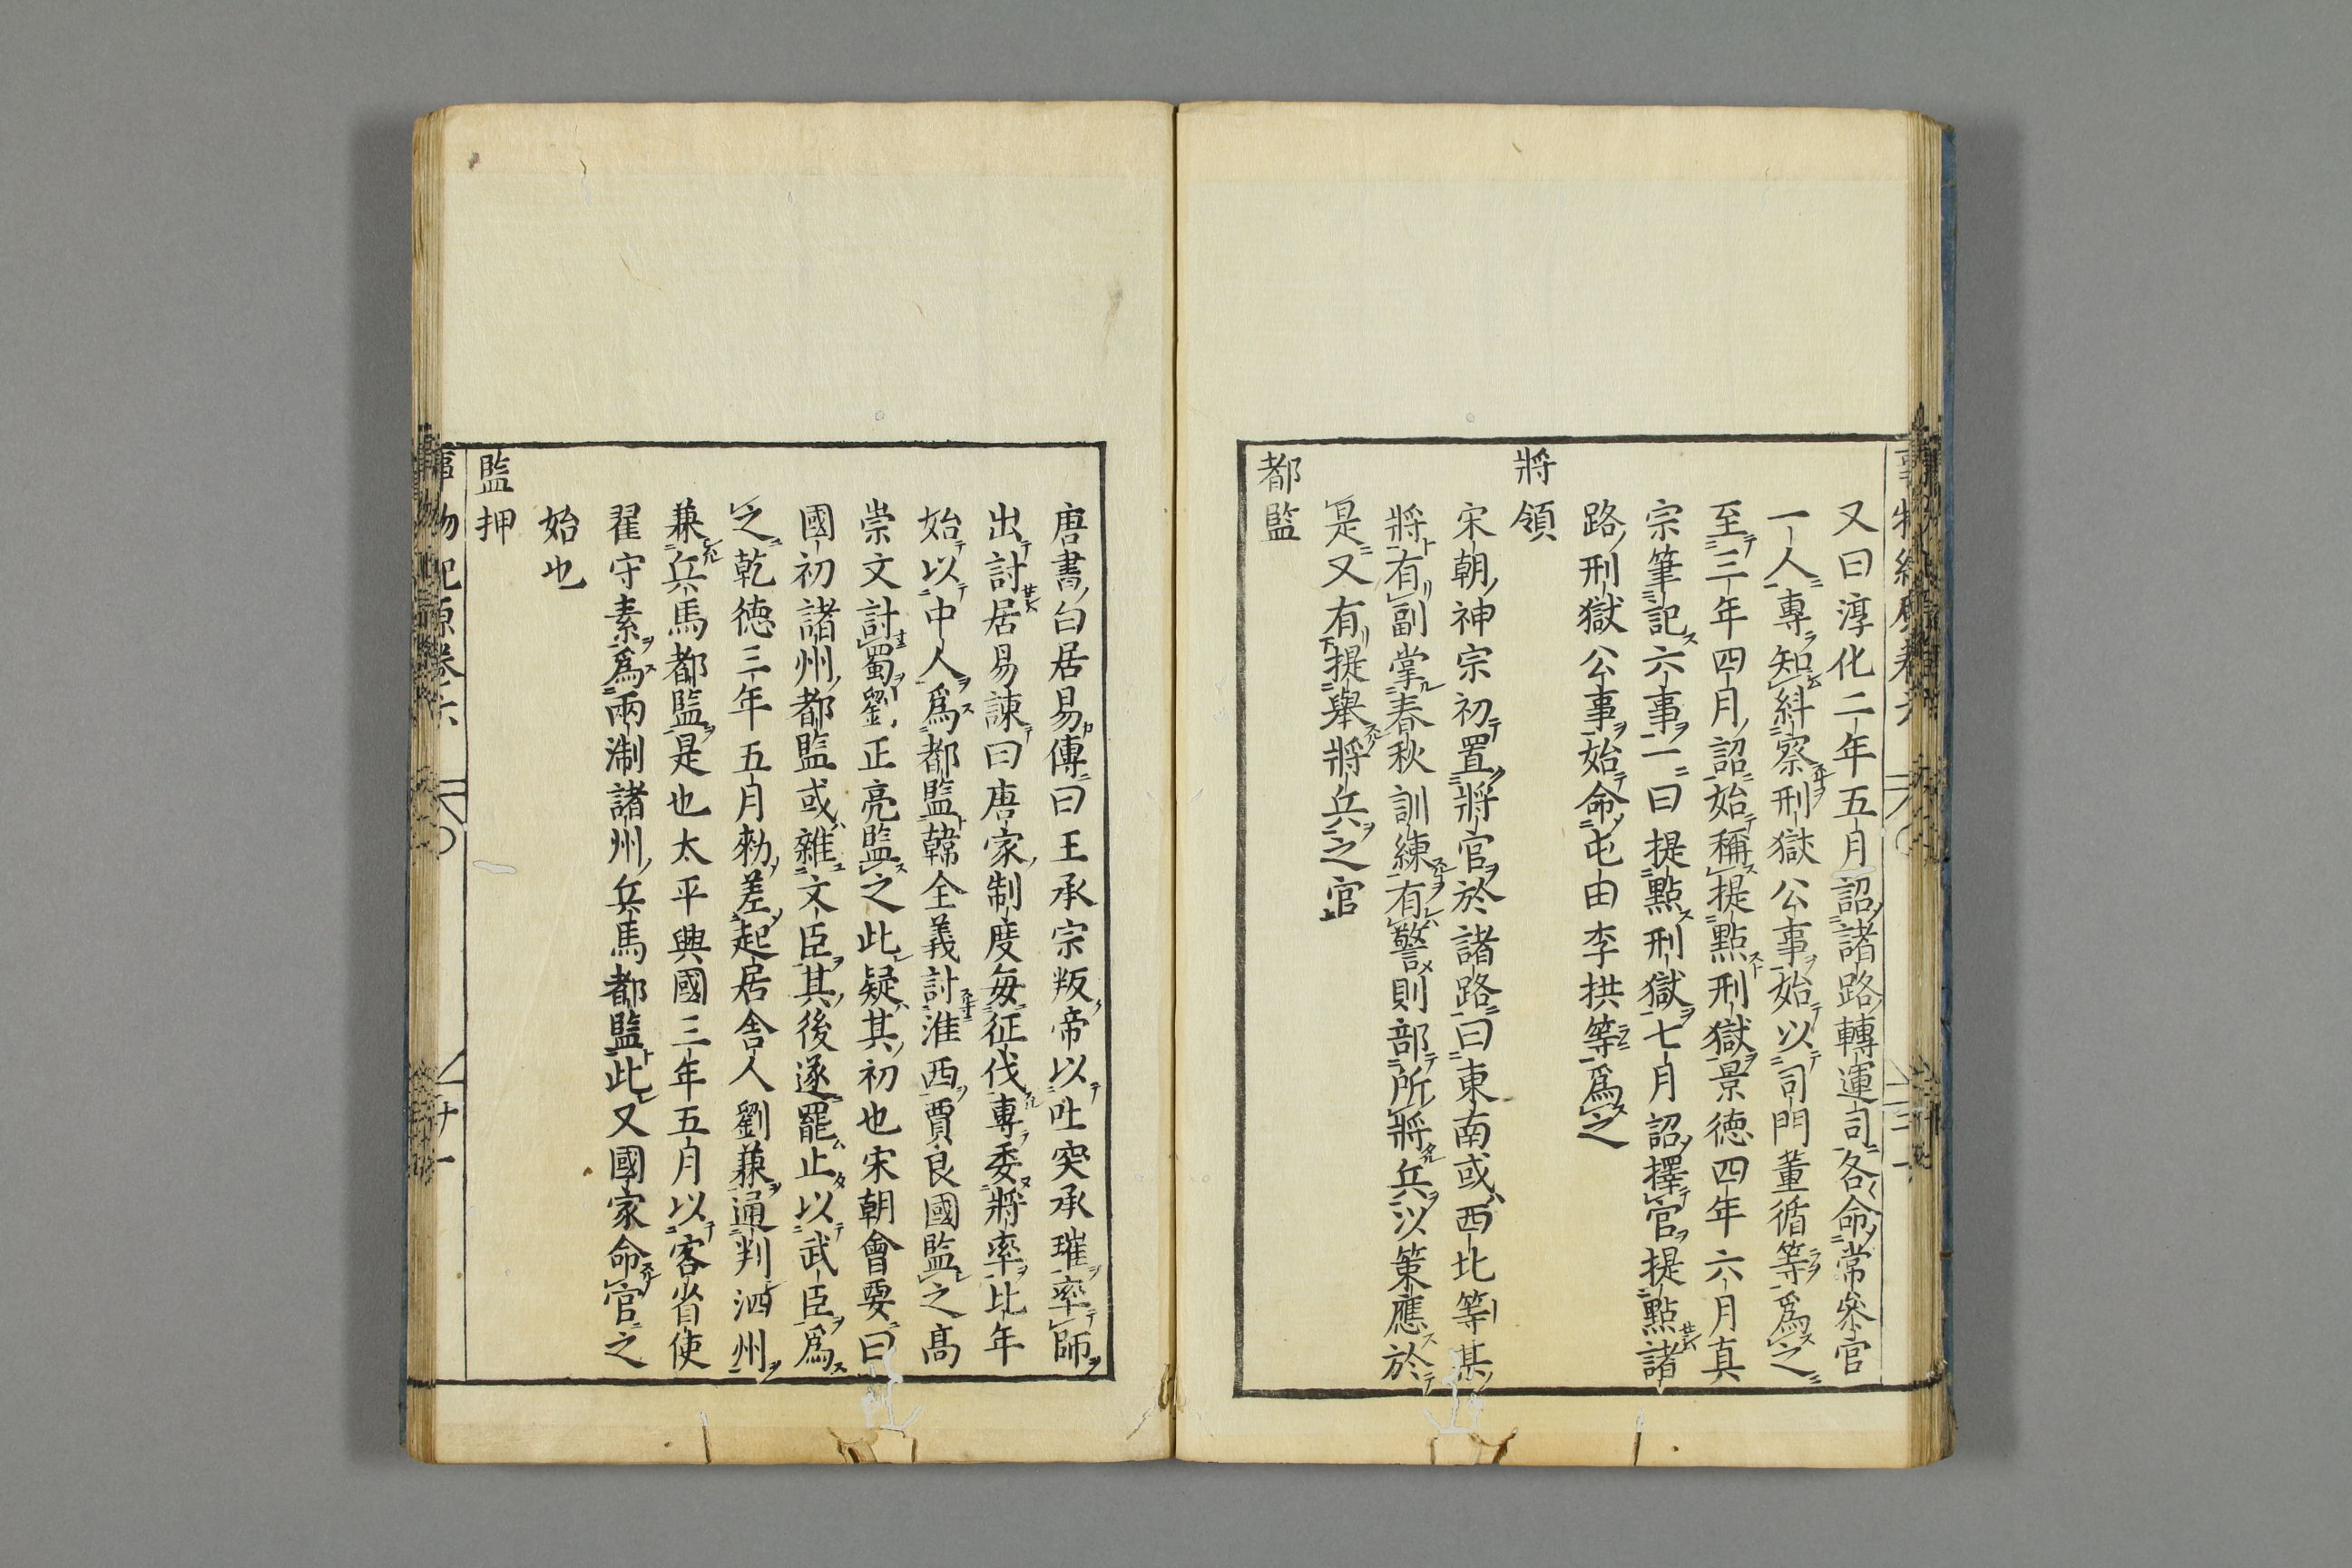 又曰淳化二年五月詔諸路轉運司各命常參官
一人專知糾察刑獄公事始以司門董循等爲之
至三年四月詔始稱提點刑獄景德四年六月真
宗筆記六事一曰提點刑獄七月詔擇官提點諸
路刑獄公事始命屯由李拱等爲之
將領
宋朝神宗初置將官於諸路曰東南或西北等某
將有副掌春秋訓練有警則部所將兵以策應於
是又有提舉將兵之官
都監
唐書白居易傳曰王承宗叛帝以吐突承璀率師
出討居易諫曰唐家制度每征伐專委將率比年
始以中人爲都監韓全義討淮西賈良國監之高
崇文討蜀劉正亮監之此疑其初也宋朝會要曰
國初諸州都監或雜文臣其後遂罷止以武臣爲
之乾德三年五月勑差起居舍人劉兼通判泗州
兼兵馬都監是也太平興國三年五月以客省使
翟守素爲兩淛諸州兵馬都監此又國家命官之
始也
監押
事物紀原卷六